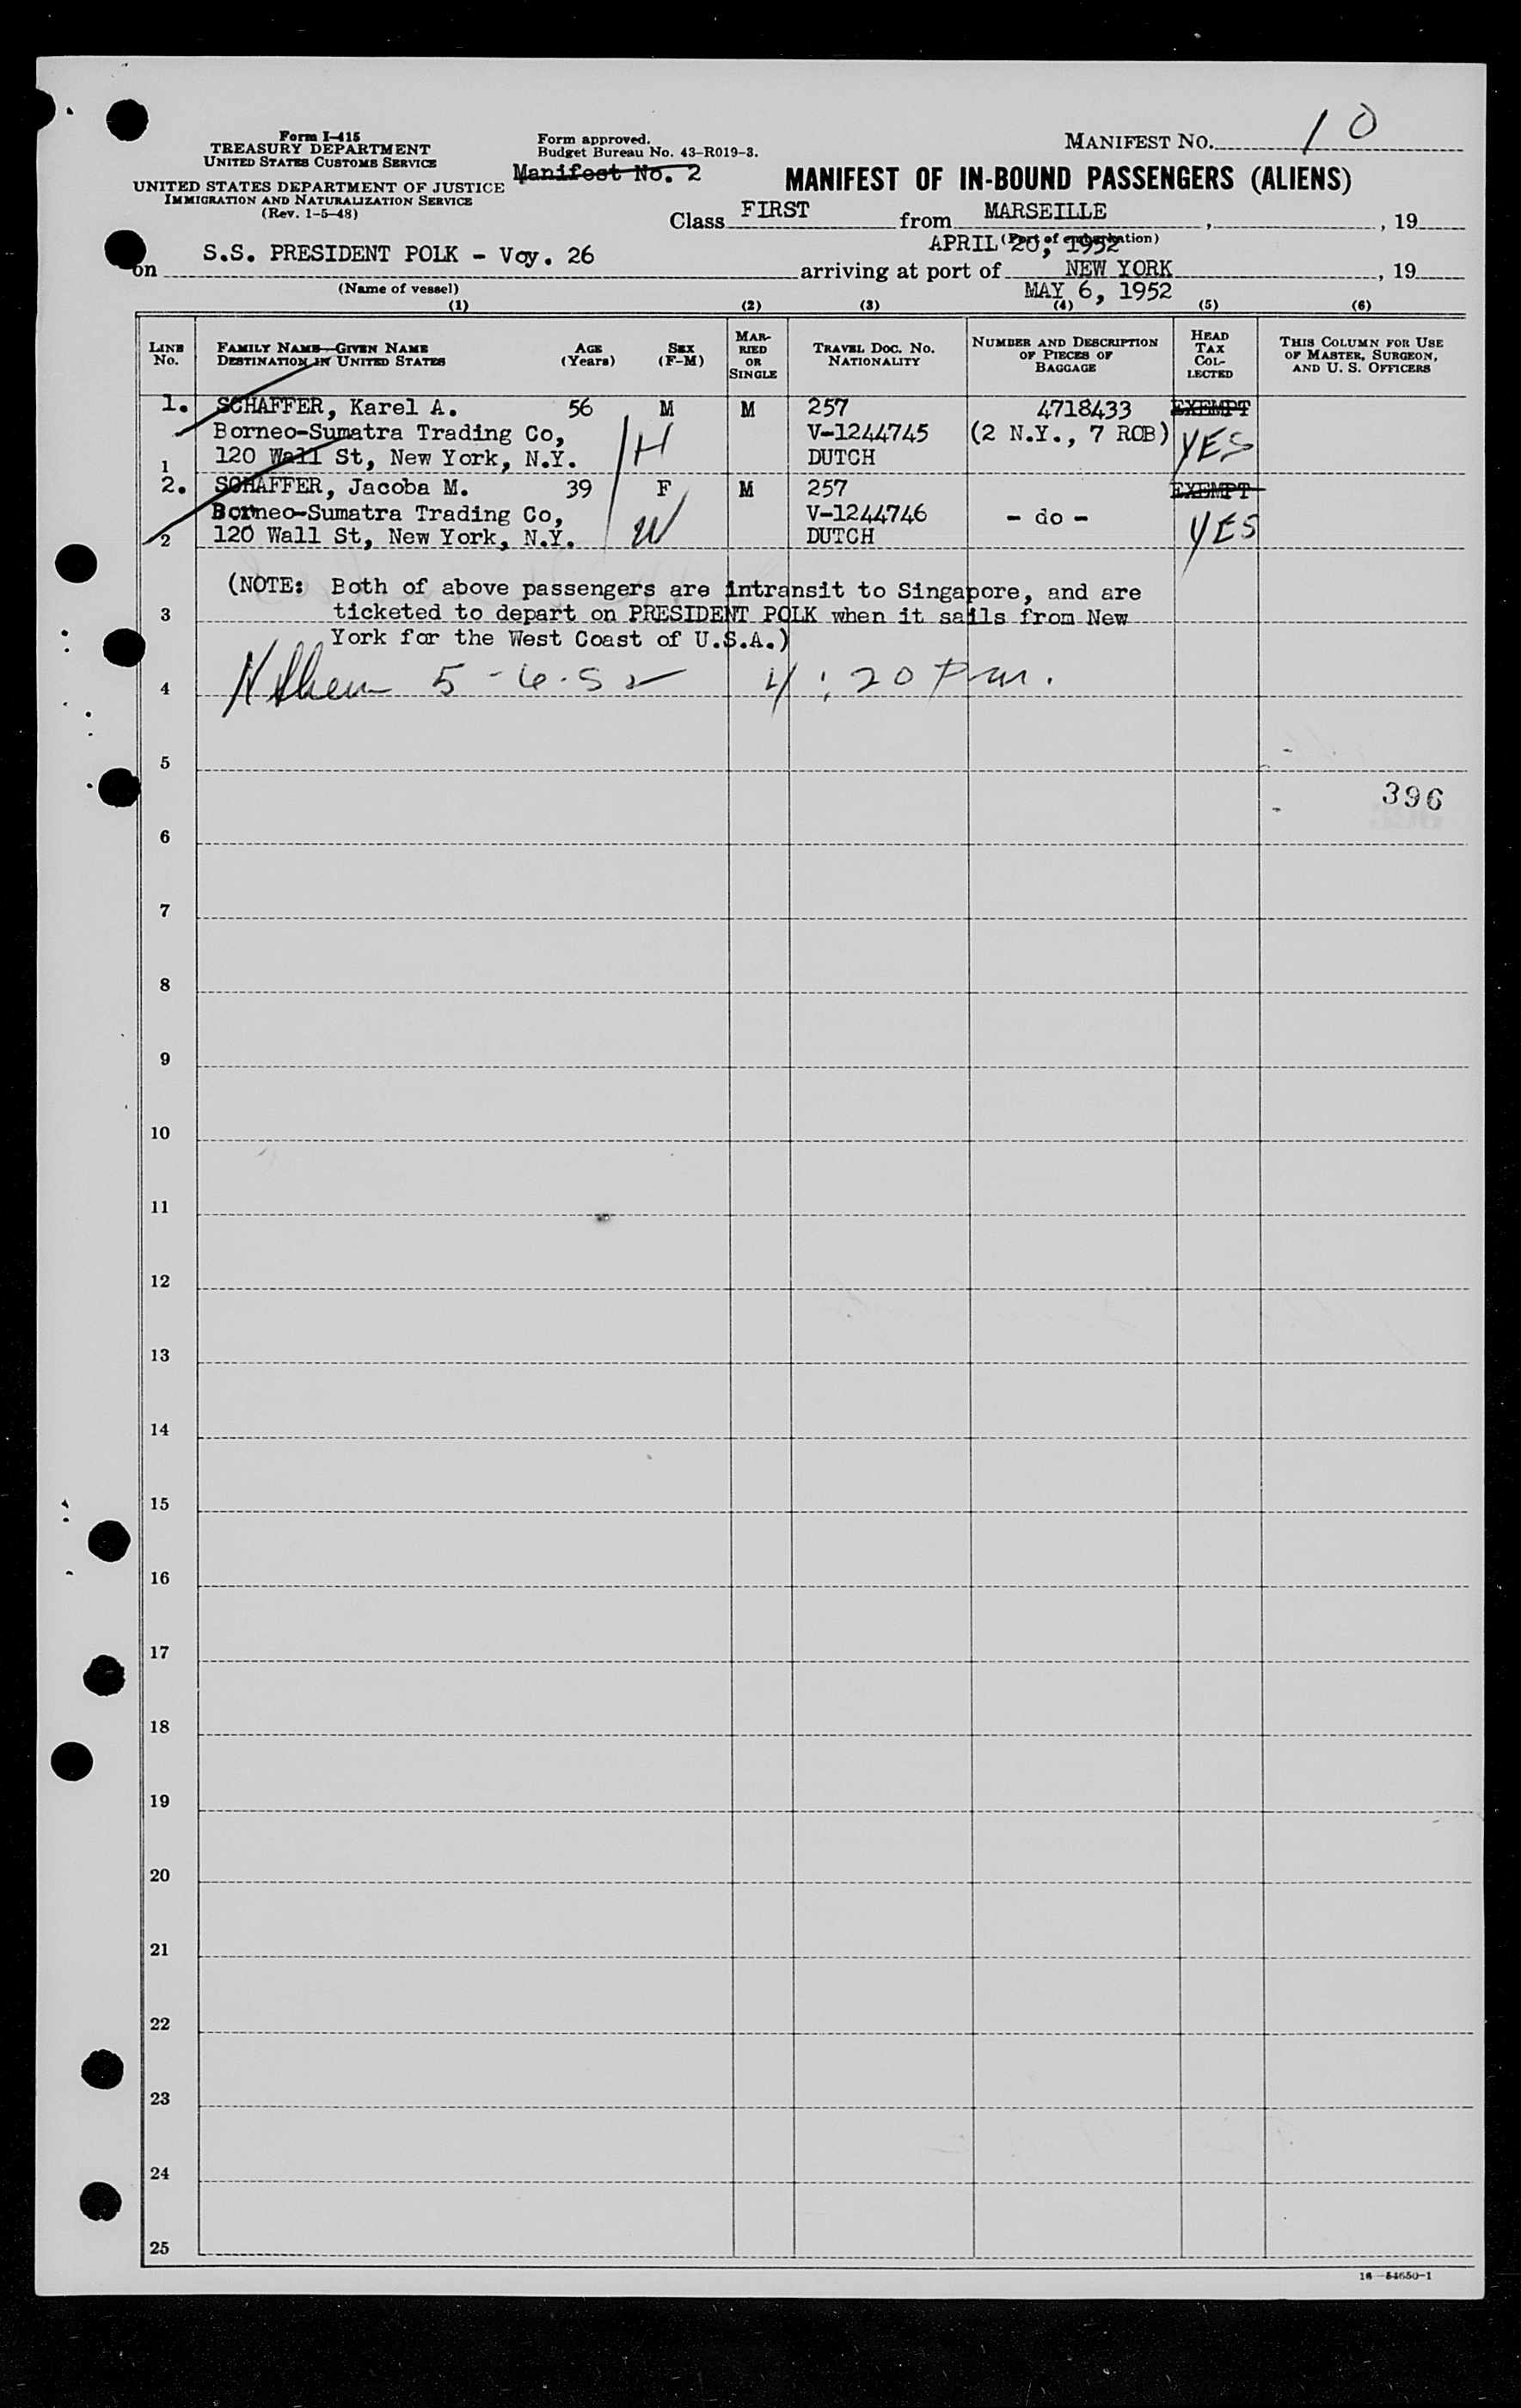 Form I-415
TREASURY DEPARTMENT
UNITED STATES CUSTOMS SERVICE
UNITED STATES DEPARTMENT OF JUSTICE
IMMIGRATION AND NATURALIZATION SERVICE
(Rev. 1-5-48)
Form approved.
Budget Bureau No. 43-R019-3.
Manifest No. 2
MANIFEST NO. 10
MANIFEST OF IN-BOUND PASSENGERS (ALIENS)
Class FIRST from MARSEILLE, , 19
APRIL 20, 1952 (Port of embarkation)
on S.S. PRESIDENT POLK - Voy. 26 arriving at port of NEW YORK , 19
(Name of vessel) MAY 6, 1952
(1) (2) (3) (4) (5) (6)
LINE No. FAMILY NAME—GIVEN NAME DESTINATION IN UNITED STATES AGE (Years) SEX (F-M) MARRIED OR SINGLE TRAVEL DOC. NO. NATIONALITY NUMBER AND DESCRIPTION OF PIECES OF BAGGAGE HEAD TAX COLLECTED THIS COLUMN FOR USE OF MASTER, SURGEON, AND U. S. OFFICERS
1. SCHAFFER, Karel A. 56 M M 257 4718433 EXEMPT
Borneo-Sumatra Trading Co, H V-1244745 (2 N.Y., 7 ROB) YES
1 120 Wall St, New York, N.Y. DUTCH
2. SCHAFFER, Jacoba M. 39 F M 257 EXEMPT
Borneo-Sumatra Trading Co, W V-1244746 - do - YES
2 120 Wall St, New York, N.Y. DUTCH
(NOTE: Both of above passengers are intransit to Singapore, and are
3 ticketed to depart on PRESIDENT POLK when it sails from New
York for the West Coast of U.S.A.)
4 5-6-52 4:20 pm.
5
396
6
7
8
9
10
11
12
13
14
15
16
17
18
19
20
21
22
23
24
25
16—54650-1